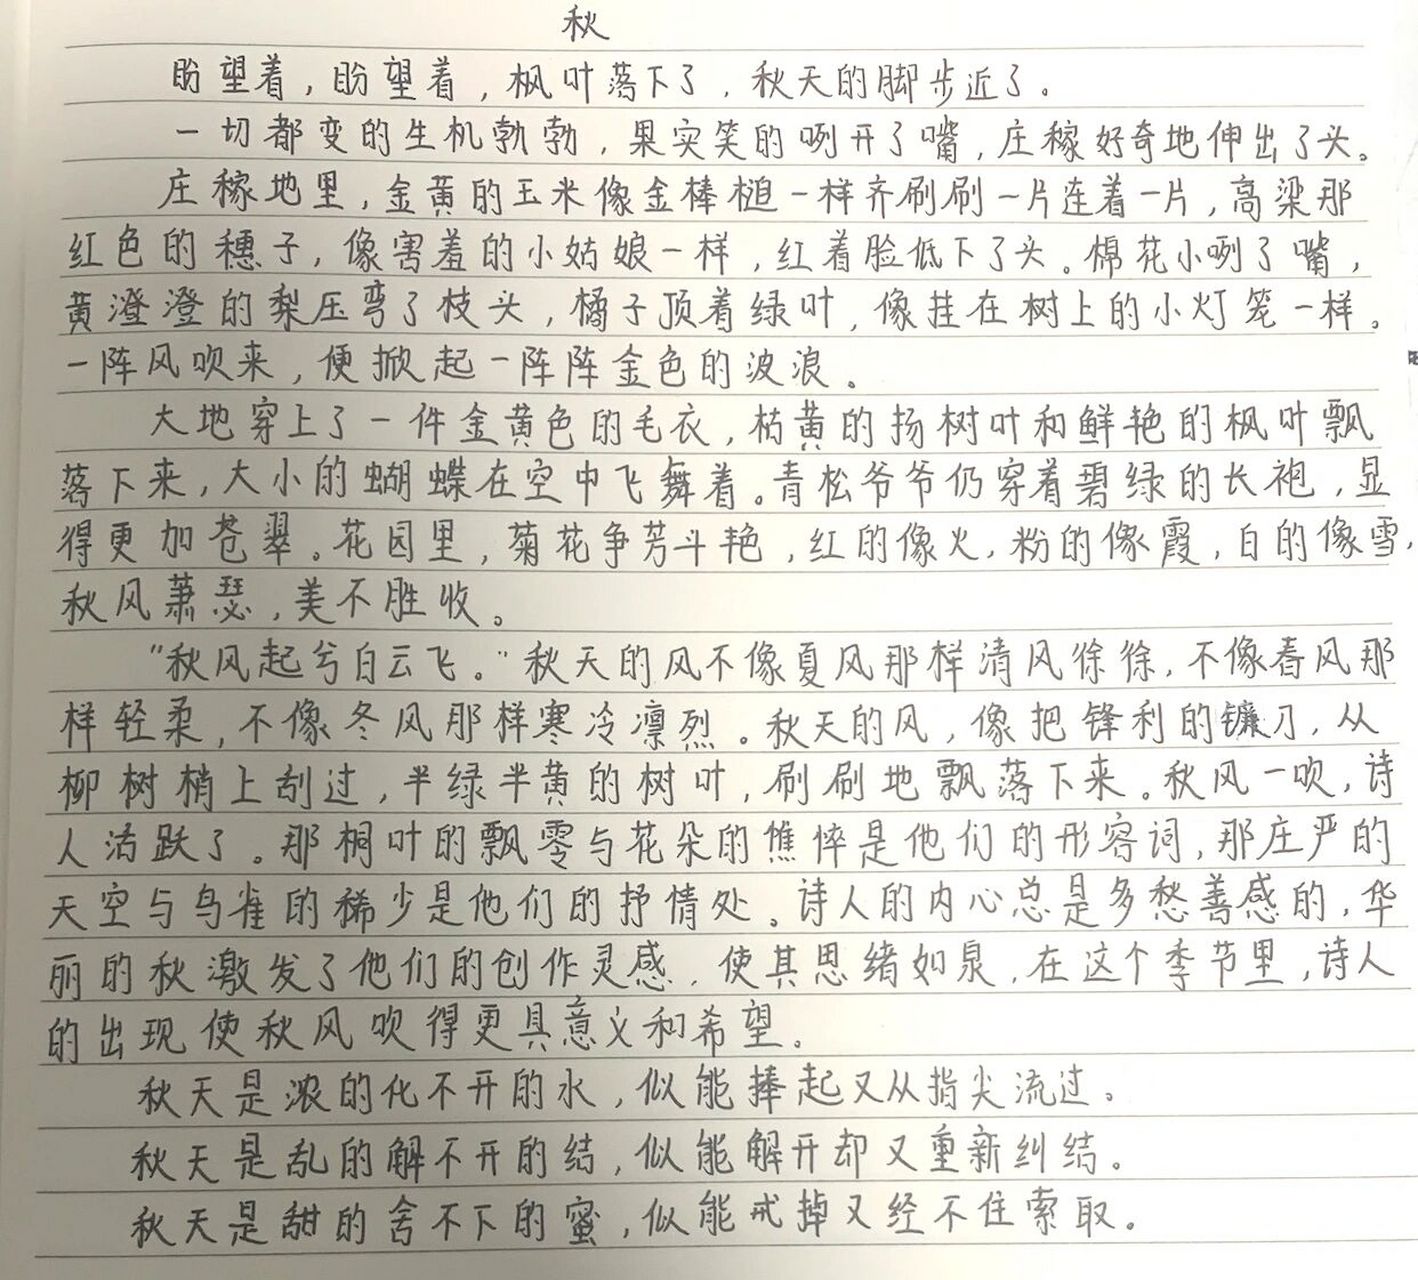 秋
盼望着，盼望着，枫叶落下了，秋天的脚步近了。
一切都变的生机勃勃，果实笑的咧开了嘴，庄稼好奇地伸出了头。
庄稼地里，金黄的玉米像金棒槌一样齐刷刷一片连着一片，高粱那
红色的穗子，像害羞的小姑娘一样，红着脸低下了头。棉花小咧了嘴，
黄澄澄的梨压弯了枝头，橘子顶着绿叶，像挂在树上的小灯笼一样。
一阵风吹来，便掀起一阵阵金色的波浪。
大地穿上了一件金黄色的毛衣，枯黄的扬树叶和鲜艳的枫叶飘
落下来，大小的蝴蝶在空中飞舞着。青松爷爷仍穿着碧绿的长袍，显
得更加苍翠。花园里，菊花争芳斗艳，红的像火，粉的像霞，白的像雪，
秋风萧瑟，美不胜收。
"秋风起兮白云飞。"秋天的风不像夏风那样清风徐徐，不像春风那
样轻柔，不像冬风那样寒冷凛烈。秋天的风，像把锋利的镰刀，从
柳树梢上刮过，半绿半黄的树叶，刷刷地飘落下来。秋风一吹，诗
人活跃了。那桐叶的飘零与花朵的憔悴是他们的形容词，那庄严的
天空与鸟雀的稀少是他们的抒情处。诗人的内心总是多愁善感的，华
丽的秋激发了他们的创作灵感，使其思绪如泉，在这个季节里，诗人
的出现使秋风吹得更具意义和希望。
秋天是浓的化不开的水，似能捧起又从指尖流过。
秋天是乱的解不开的结，似能解开却又重新纠结。
秋天是甜的舍不下的蜜，似能戒掉又经不住索取。